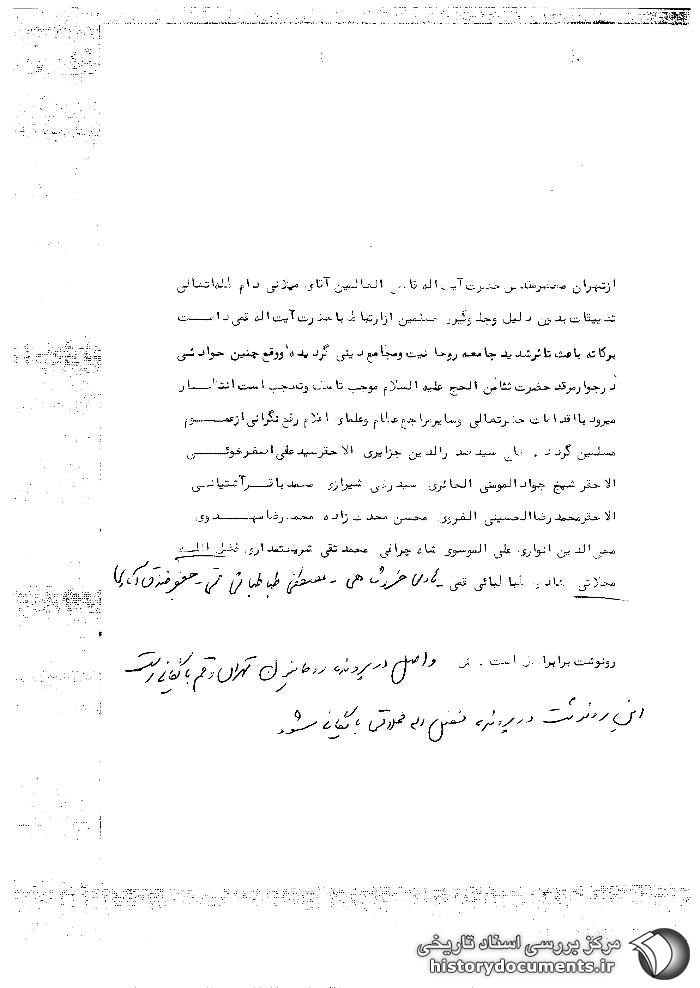 ازتهران محضرمقدس حضرت آیت اله العالمین آقای میلانی دام ظله‌تعالی
تضییقات بدون دلیل وجلوگیری مسلمین ازارتباط با حضرت آیت اله قمی دامت
برکاته باعث تاثرشدید جامعه روحانیت ومجامع دینی گردیده وقوع چنین حوادثی
درجوار مرقد حضرت ثامن الحج علیه السلام موجب تاسف وتعجب است انتظار
میرود با اقدامات حضرتعالی وسایرمراجع عظام وعلمای اعلام رفع نگرانی ازعموم
مسلمین گردد سید صدرالدین جزایری الاحقر سید علی اصغر خوئی
الاحقر شیخ جواد الموسی الحائری سید رضی شیرازی محمد باقر آشتیانی
الاحقر محمد رضا الحسینی الغروی محسن محدث زاده محمد رضا مهدوی
محی الدین انواری علی الموسوی شاه چراغی محمد تقی شریعتمداری فضل الله
محلاتی طباطبائی قمی - هادی خسروشاهی - مصطفی طباطبائی قمی - جعفر خندق آبادی
رونوشت برابر است . ش واصل در پرونده روحانیون تهران و قم بایگانی است
این رونوشت در پرونده فضل اله محلاتی بایگانی شود
مرکز بررسی اسناد تاریخی
historydocuments.ir